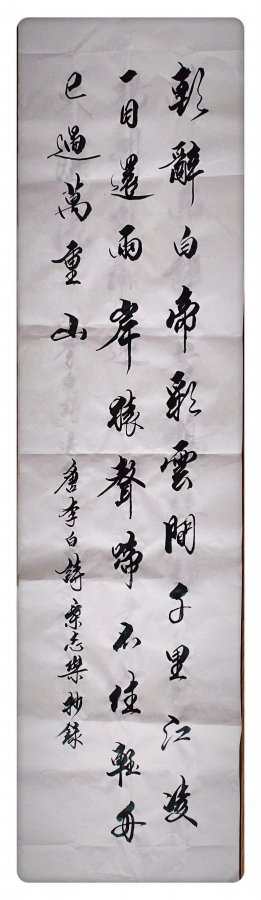 朝辭白帝彩雲間千里江陵
一日還兩岸猿聲啼不住輕舟
已過萬重山
唐李白詩志樂抄錄